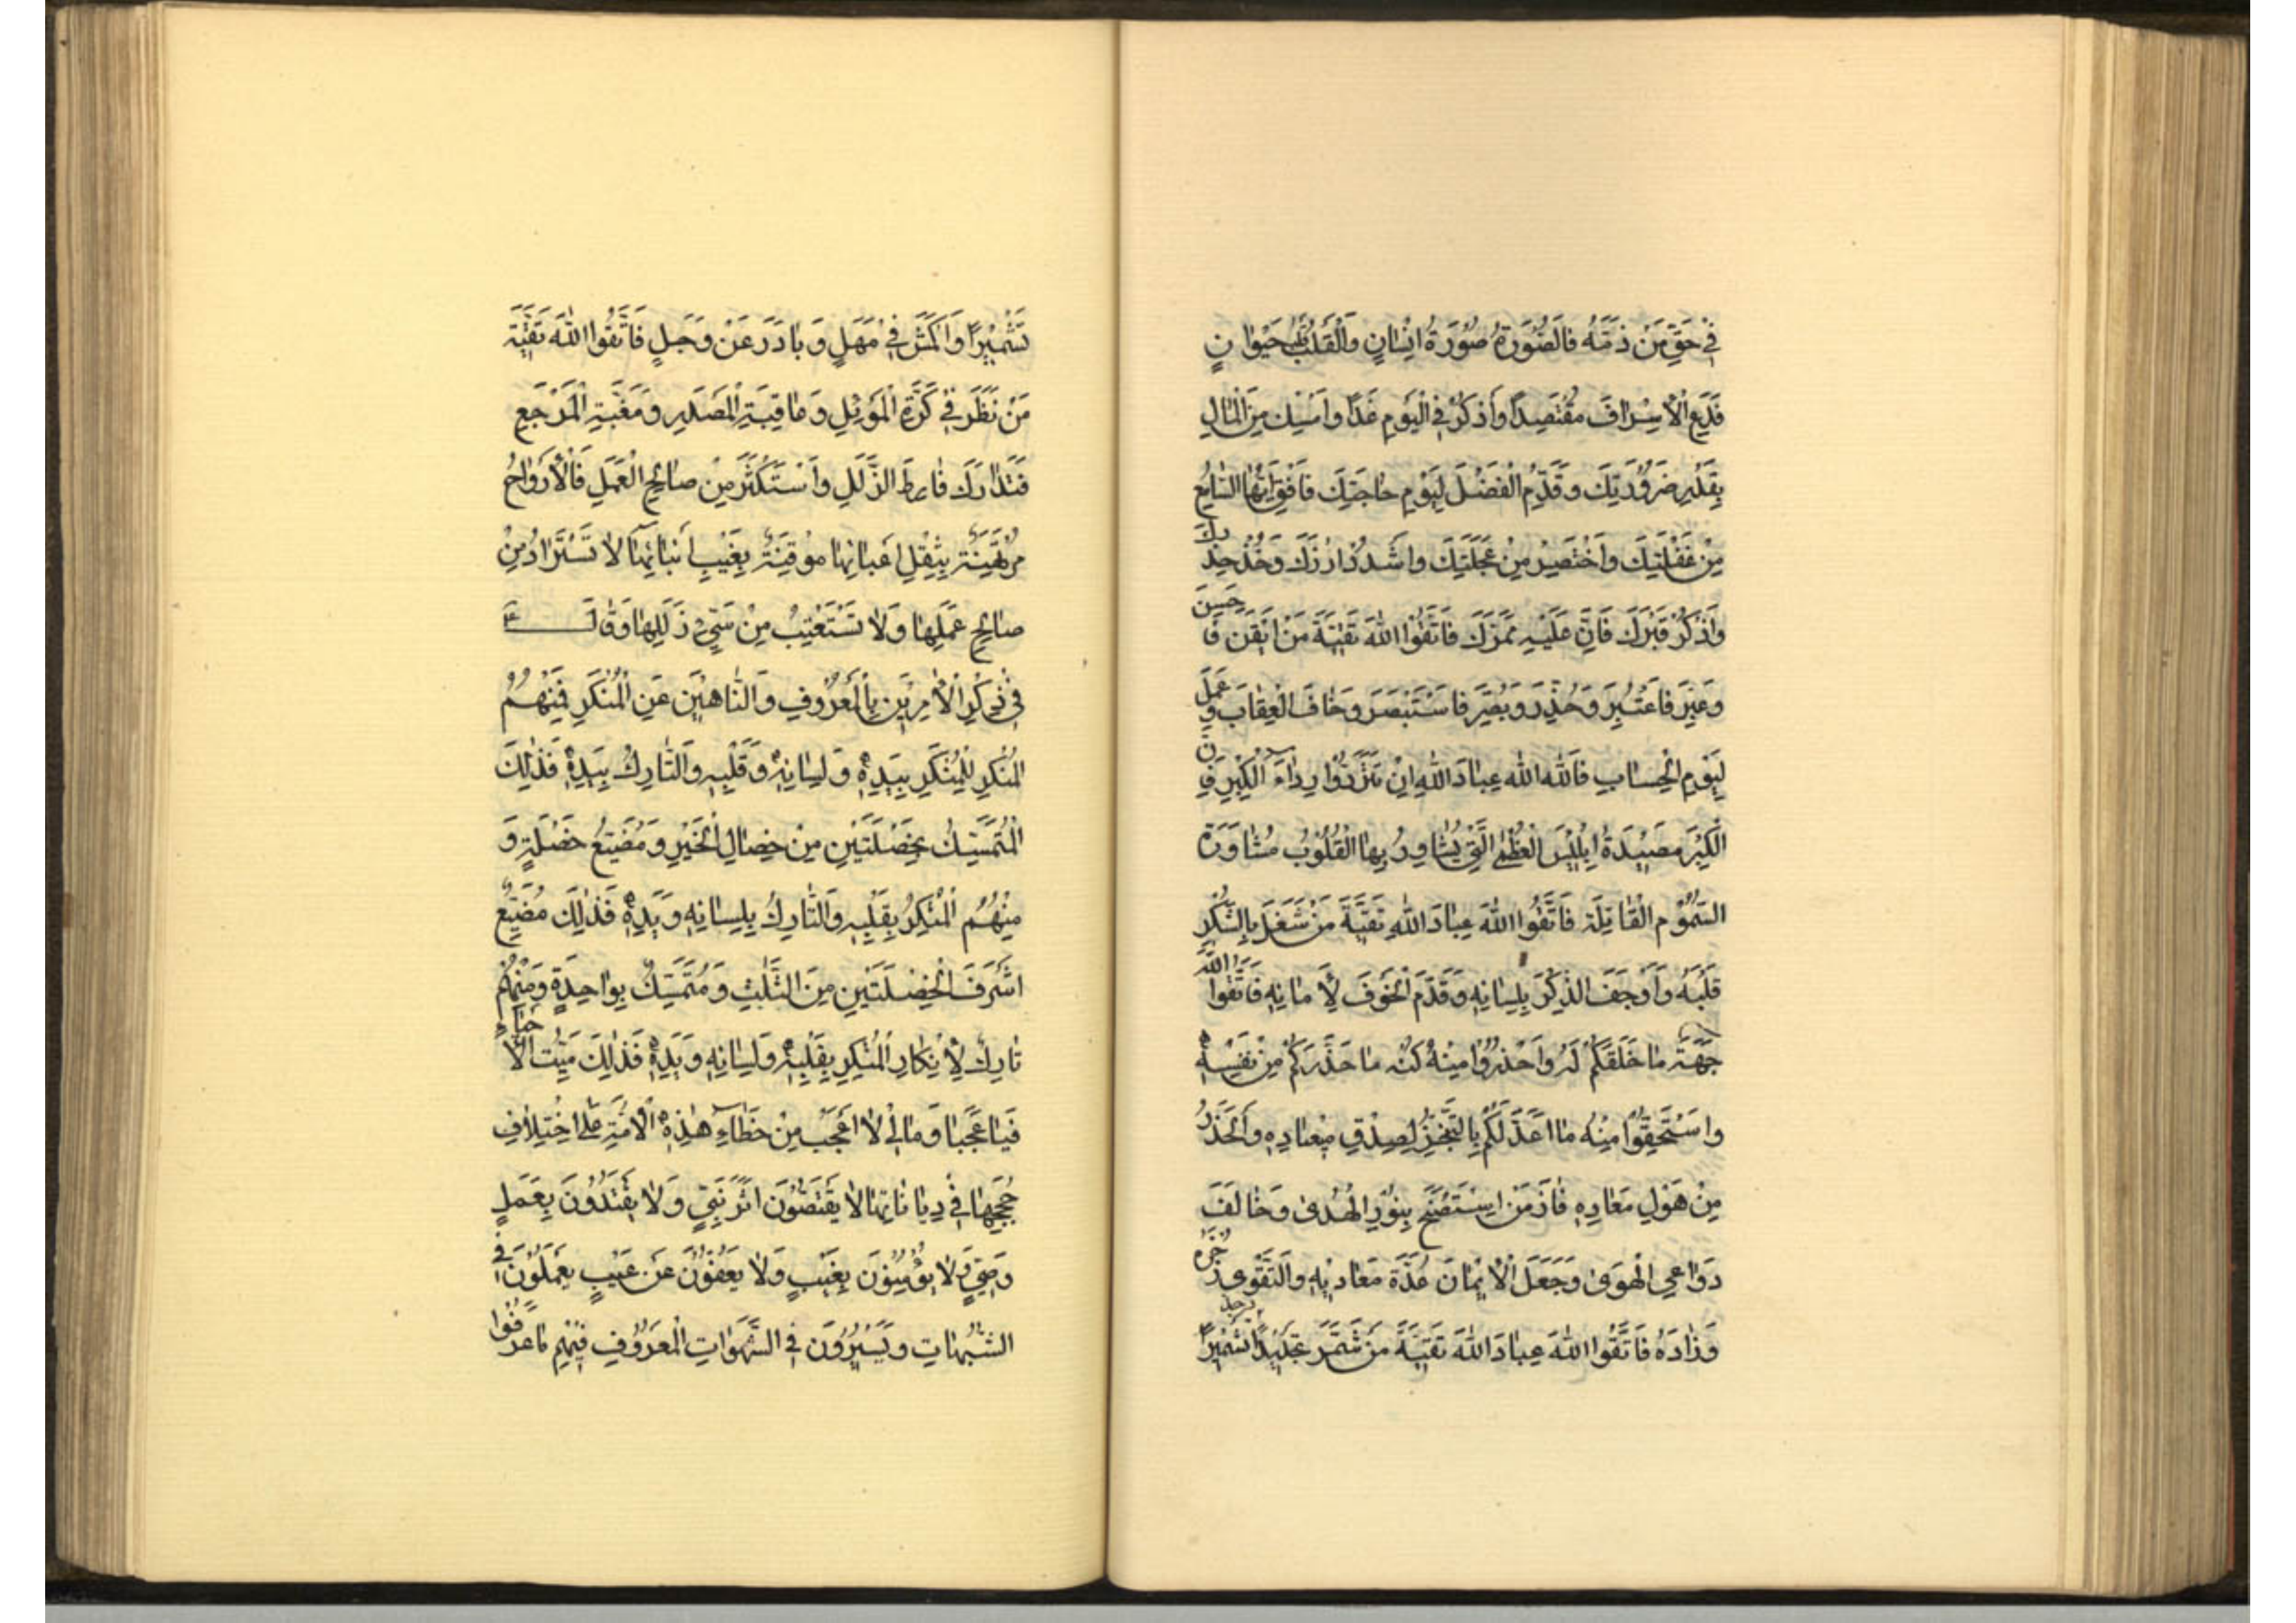 فِي حَقِّ مَنْ ذَمَّهُ فَالصُّورَةُ صُورَةُ اِنْسٰانٍ وَالْقَلْبُ قَلْبُ حَيْوٰانٍ
فَدَعِ الْاِسْرٰافَ مُقْتَصِدًا وَاَذْكُرْ فِي الْيَوْمِ غَدًا وَاَمْسِكْ مِنَ الْمٰالِ
بِقَدْرِ ضَرُوُرَتِكَ وَقَدِّمِ الْفَضْلَ لِيَوْمِ حٰاجَتِكَ فَاَفِقْ اَيُّهَا السّٰامِعُ
مِنْ غَفْلَتِكَ وَاَخْتَصِرْ مِنْ عَجَلَتِكَ وَاشْدُدْ اَزْرَكَ وَخُذْ حِذْرَكَ
وَاَذْكُرْ قَبْرَكَ فَاِنَّ عَلَيْهِ مَمَرَّكَ فَاتَّقُوا اللّٰهَ تَقِيَّةَ مَنْ اَيْقَنَ فَاَحْسَنَ
وَعُبِّرَ فَاعْتَبَرَ وَحُذِّرَ وَبُصِّرَ فَاسْتَبْصَرَ وَخٰافَ الْعِقٰابَ وَعَمِلَ
لِيَوْمِ الْحِسٰابِ فَاللّٰهَ اللّٰهَ عِبٰادَ اللّٰهِ اِنْ تَتَرَدَّوْا رِدٰاءَ الْكِبْرِ فَاِنَّ
الْكِبْرَ مَصِيْدَةُ اِبْلِيْسَ الْعُظْمٰى الَّتِي يُشٰاوِرُ بِهَا الْقُلُوْبَ مُشٰاوَرَةَ
السُّمُوْمِ الْقٰاتِلَةِ فَاتَّقُوا اللّٰهَ عِبٰادَ اللّٰهِ تَقِيَّةَ مَنْ شَغَلَ بِالشُّكْرِ
قَلْبَهُ وَاَوْجَفَ الذِّكْرَ بِلِسٰانِهِ وَقَدَّمَ الْخَوْفَ لِاَمٰانِهِ فَاتَّقُوا اللّٰهَ
جِهَةَ مٰا خَلَقَكُمْ لَهُ وَاحْذَرُوْا مِنْهُ كُنْهَ مٰا حَذَّرَكُمْ مِنْ نَفْسِهِ
وَاسْتَحِقُّوْا مِنْهُ مٰا اَعَدَّ لَكُمْ بِالتَّنَجُّزِ لِصِدْقِ مِيْعٰادِهِ وَالْحَذَرُ
مِنْ هَوْلِ مَعٰادِهِ فٰازَ مَنِ اِسْتَصْبَحَ بِنُوْرِ الْهُدٰى وَخٰالَفَ
دَوٰاعِيَ الْهَوٰى وَجَعَلَ الْاِيْمٰانَ عُدَّةَ مَعٰادِهِ وَالتَّقْوٰى ذُخْرَهُ
وَزٰادَهُ فَاتَّقُوا اللّٰهَ عِبٰادَ اللّٰهِ تَقِيَّةَ مَنْ شَمَّرَ تَجْرِيْدًا وَجَدَّ تَشْمِيْرًا
تَشْمِيْرًا وَاَكْمَشَ فِي مَهَلٍ وَبٰادَرَ عَنْ وَجَلٍ فَاتَّقُوا اللّٰهَ تَقِيَّةَ
مَنْ نَظَرَ فِي كَرَّةِ الْمَوْئِلِ وَعٰاقِبَةِ الْمَصْدَرِ وَمَغَبَّةِ الْمَرْجَعِ
فَتَدٰارَكَ فٰارِطَ الزَّلَلِ وَاَسْتَكْثَرَ مِنْ صٰالِحِ الْعَمَلِ فَالْاَرْوٰاحُ
مُرْتَهَنَةٌ بِثِقْلِ اَعْبٰائِهٰا مُوْقِنَةٌ بِغَيْبِ اَنْبٰائِهٰا لٰا تُسْتَزٰادُ مِنْ
صٰالِحِ عَمَلِهٰا وَلٰا تُسْتَعْتَبُ مِنْ سَيِّئِ زَلَلِهٰا وَقٰالَ ع
فِي ذِكْرِ الْاٰمِرِيْنَ بِالْمَعْرُوْفِ وَالنّٰاهِيْنَ عَنِ الْمُنْكَرِ فَمِنْهُمْ
الْمُنْكِرُ لِلْمُنْكَرِ بِيَدِهِ وَلِسٰانِهِ وَقَلْبِهِ وَالتّٰارِكُ بِيَدِهِ فَذٰلِكَ
الْمُتَمَسِّكُ بِخَصْلَتَيْنِ مِنْ خِصٰالِ الْخَيْرِ وَمُضَيِّعُ خَصْلَةٍ وَ
مِنْهُمُ الْمُنْكِرُ بِقَلْبِهِ وَالتّٰارِكُ بِلِسٰانِهِ وَيَدِهِ فَذٰلِكَ مُضَيِّعُ
اَشْرَفَ الْخَصْلَتَيْنِ مِنَ الثَّلٰثِ وَمُتَمَسِّكٌ بِوٰاحِدَةٍ وَمِنْهُمْ
تٰارِكٌ لِاِنْكٰارِ الْمُنْكَرِ بِقَلْبِهِ وَلِسٰانِهِ وَيَدِهِ فَذٰلِكَ مَيِّتُ الْاَحْيٰاءِ
فَيٰا عَجَبًا وَمٰالِي لٰا اَعْجَبُ مِنْ خَطٰاءِ هٰذِهِ الْاُمَّةِ عَلٰى اخْتِلٰافِ
حُجَجِهٰا فِي دِيٰانٰاتِهٰا لٰا يَقْتَصُّوْنَ اَثَرَ نَبِيٍّ وَلٰا يَقْتَدُوْنَ بِعَمَلِ
وَصِيٍّ وَلٰا يُؤْمِنُوْنَ بِغَيْبٍ وَلٰا يَعْفُوْنَ عَنْ عَيْبٍ يَعْمَلُوْنَ فِي
الشُّبُهٰاتِ وَيَسِيْرُوْنَ فِي الشَّهَوٰاتِ الْمَعْرُوْفِ فِيْهِمْ مٰا عَرَفُوْا